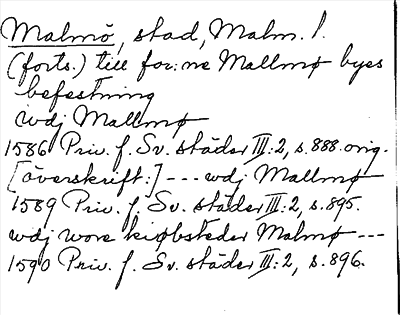 Malmö, stad, Malm. l.
(forts.) till for:ne Mallmø byes
befestning
wdj Mallmø
1586 Priv. f. Sv. städer III:2, s. 888. orig.
[överskrift:] --- wdj Mallmø
1589 Priv. f. Sv. städer III:2, s. 895.
wdj wore kiøbsteder Malmø ---
1590 Priv. f. Sv. städer III:2, s. 896.